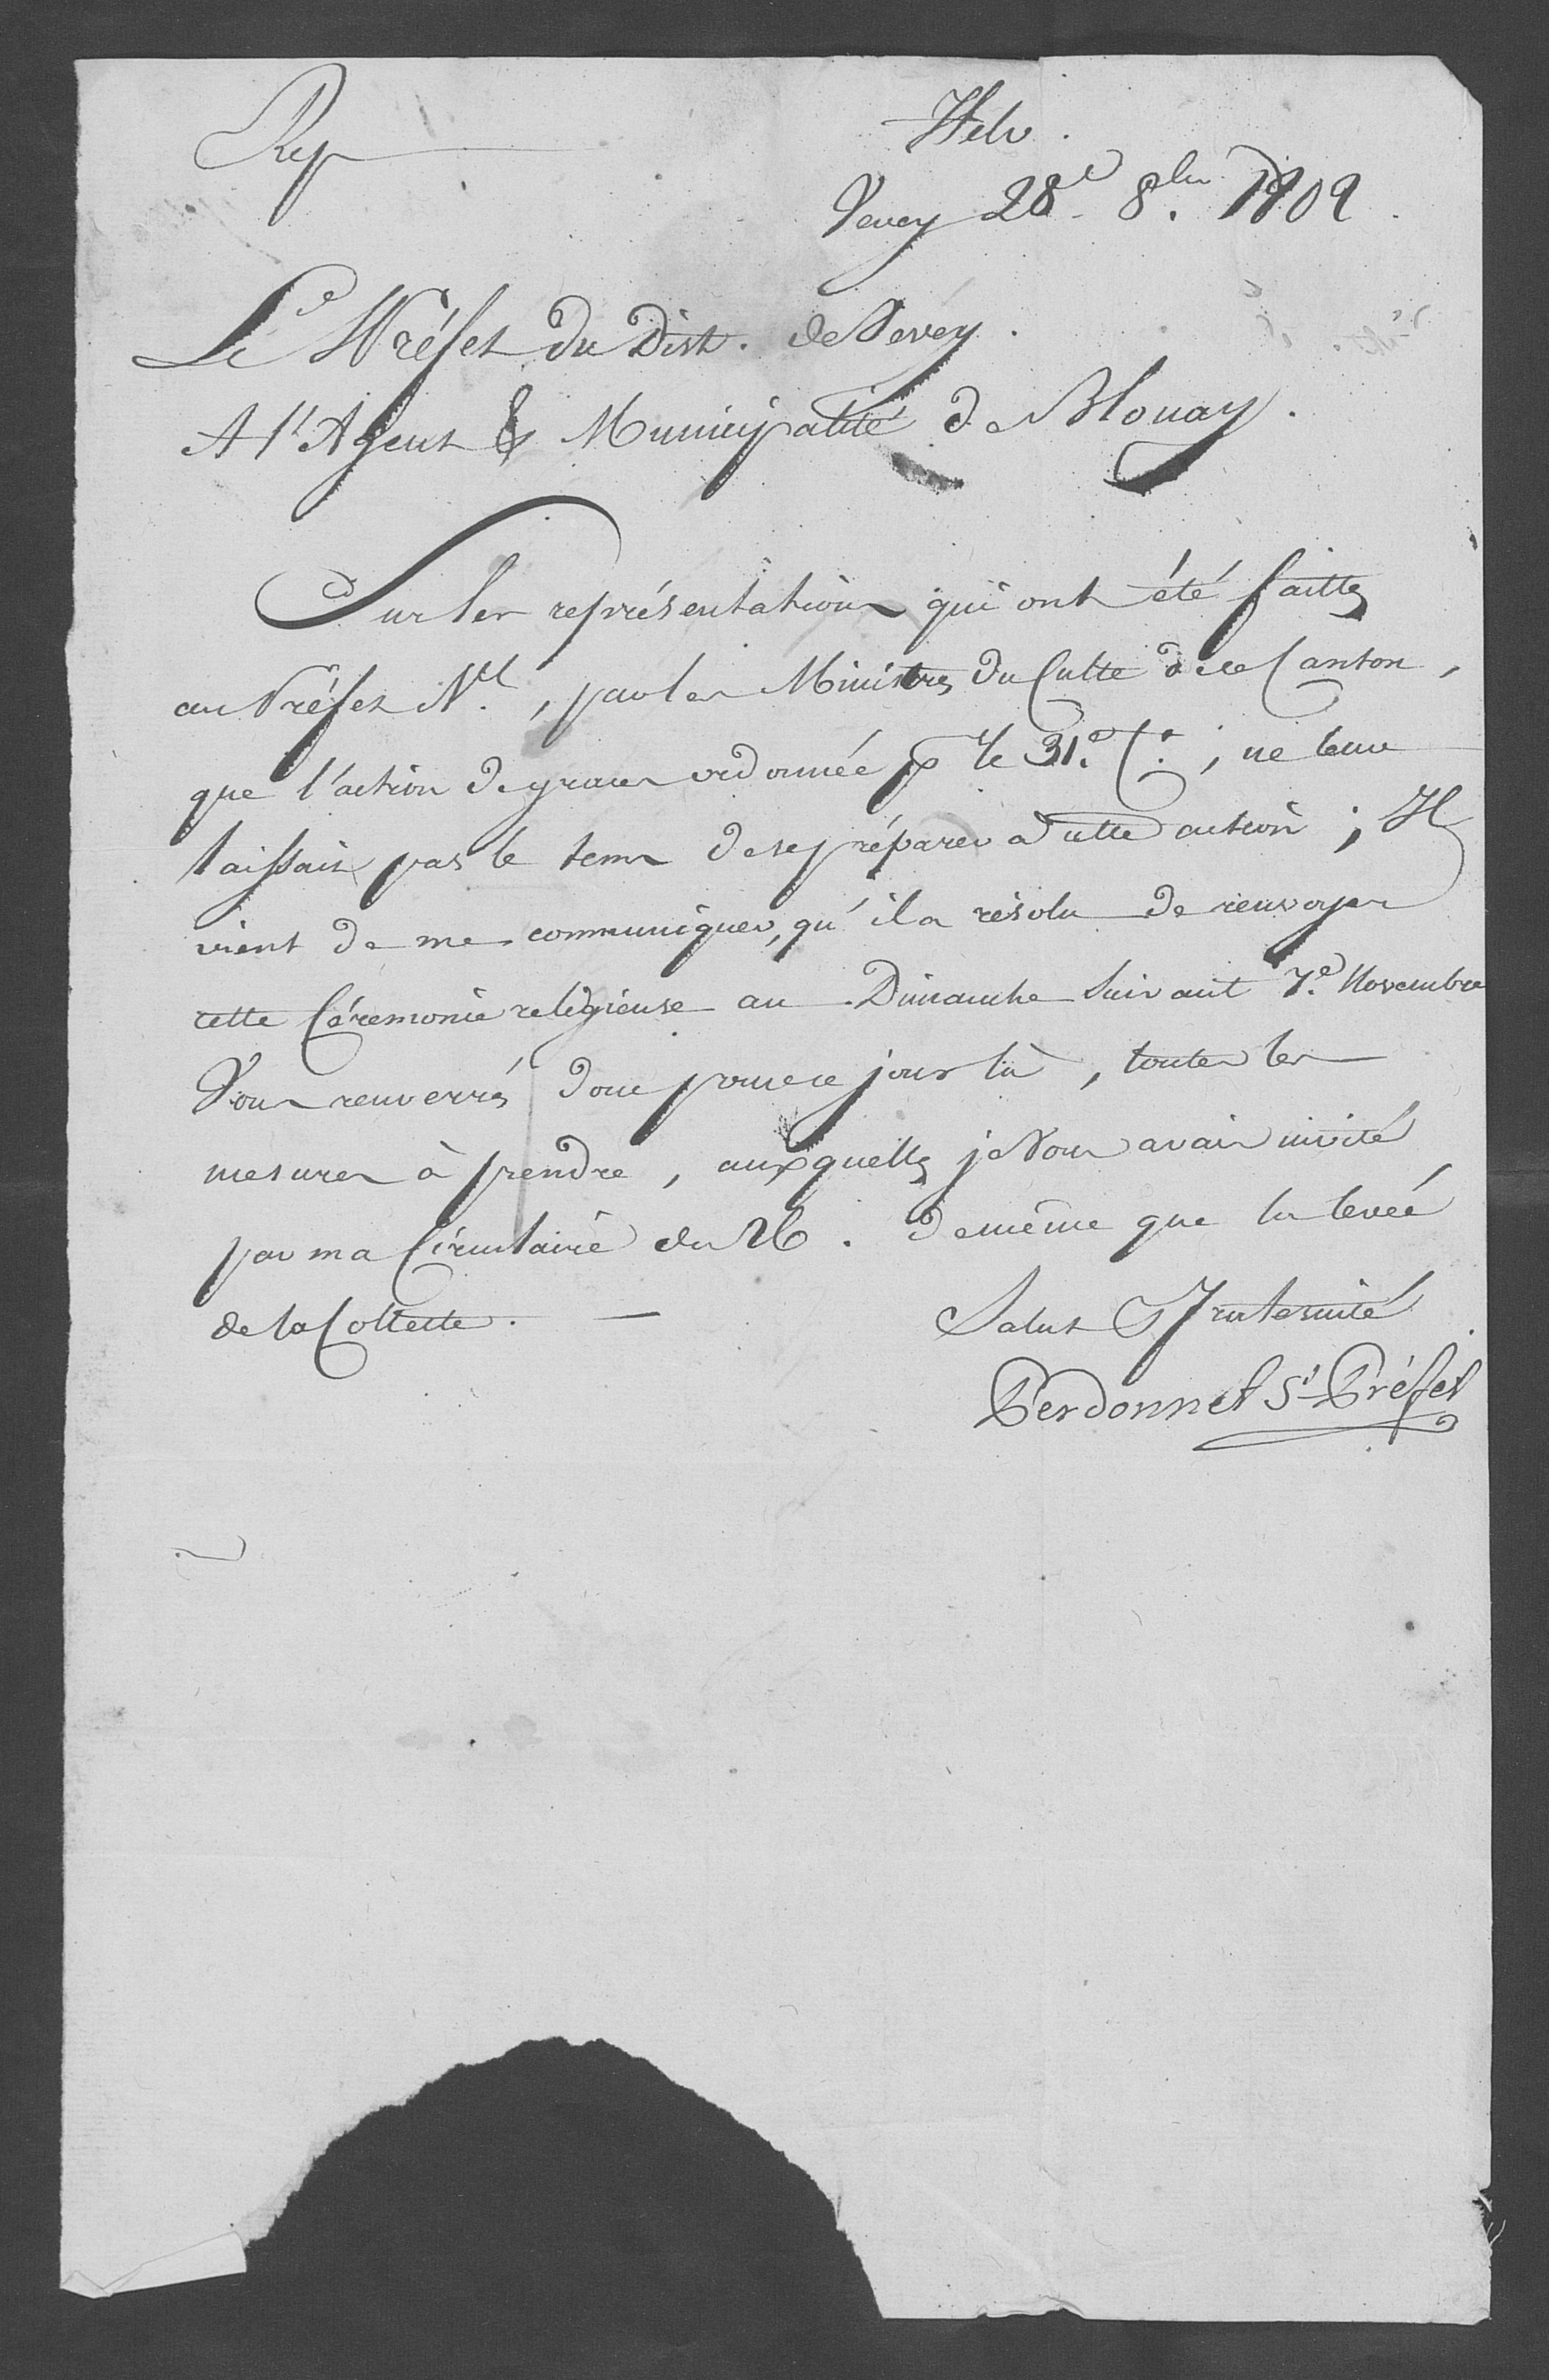 Rep Helv.
Vevey 28e. 8bre. 1802.
Le Préfet du Dist. de Vevey.
A l'Agent & Municipalité de Blonay.
Sur les représentations qui ont été faittes
au Préfet Nl., par les Ministres du Culte de ce Canton,
que l'action de graces ordonnée p le 31e. Ct., ne leur
laissait pas le tems de se préparer a cette action; Il
vient de me communiquer, qu'il a résolu de renvoyer
cette Céremonie religieuse au Dimanche suivant 7e. Novembre
Vous renverrés donc pour ce jour là, toutes les
mesures à prendre, auxquelles je Vous avais invité
par ma Circulaire du 26. de même que la levée
de la Collecte. —
Salut & Fraternité
Perdonnet St Préfet